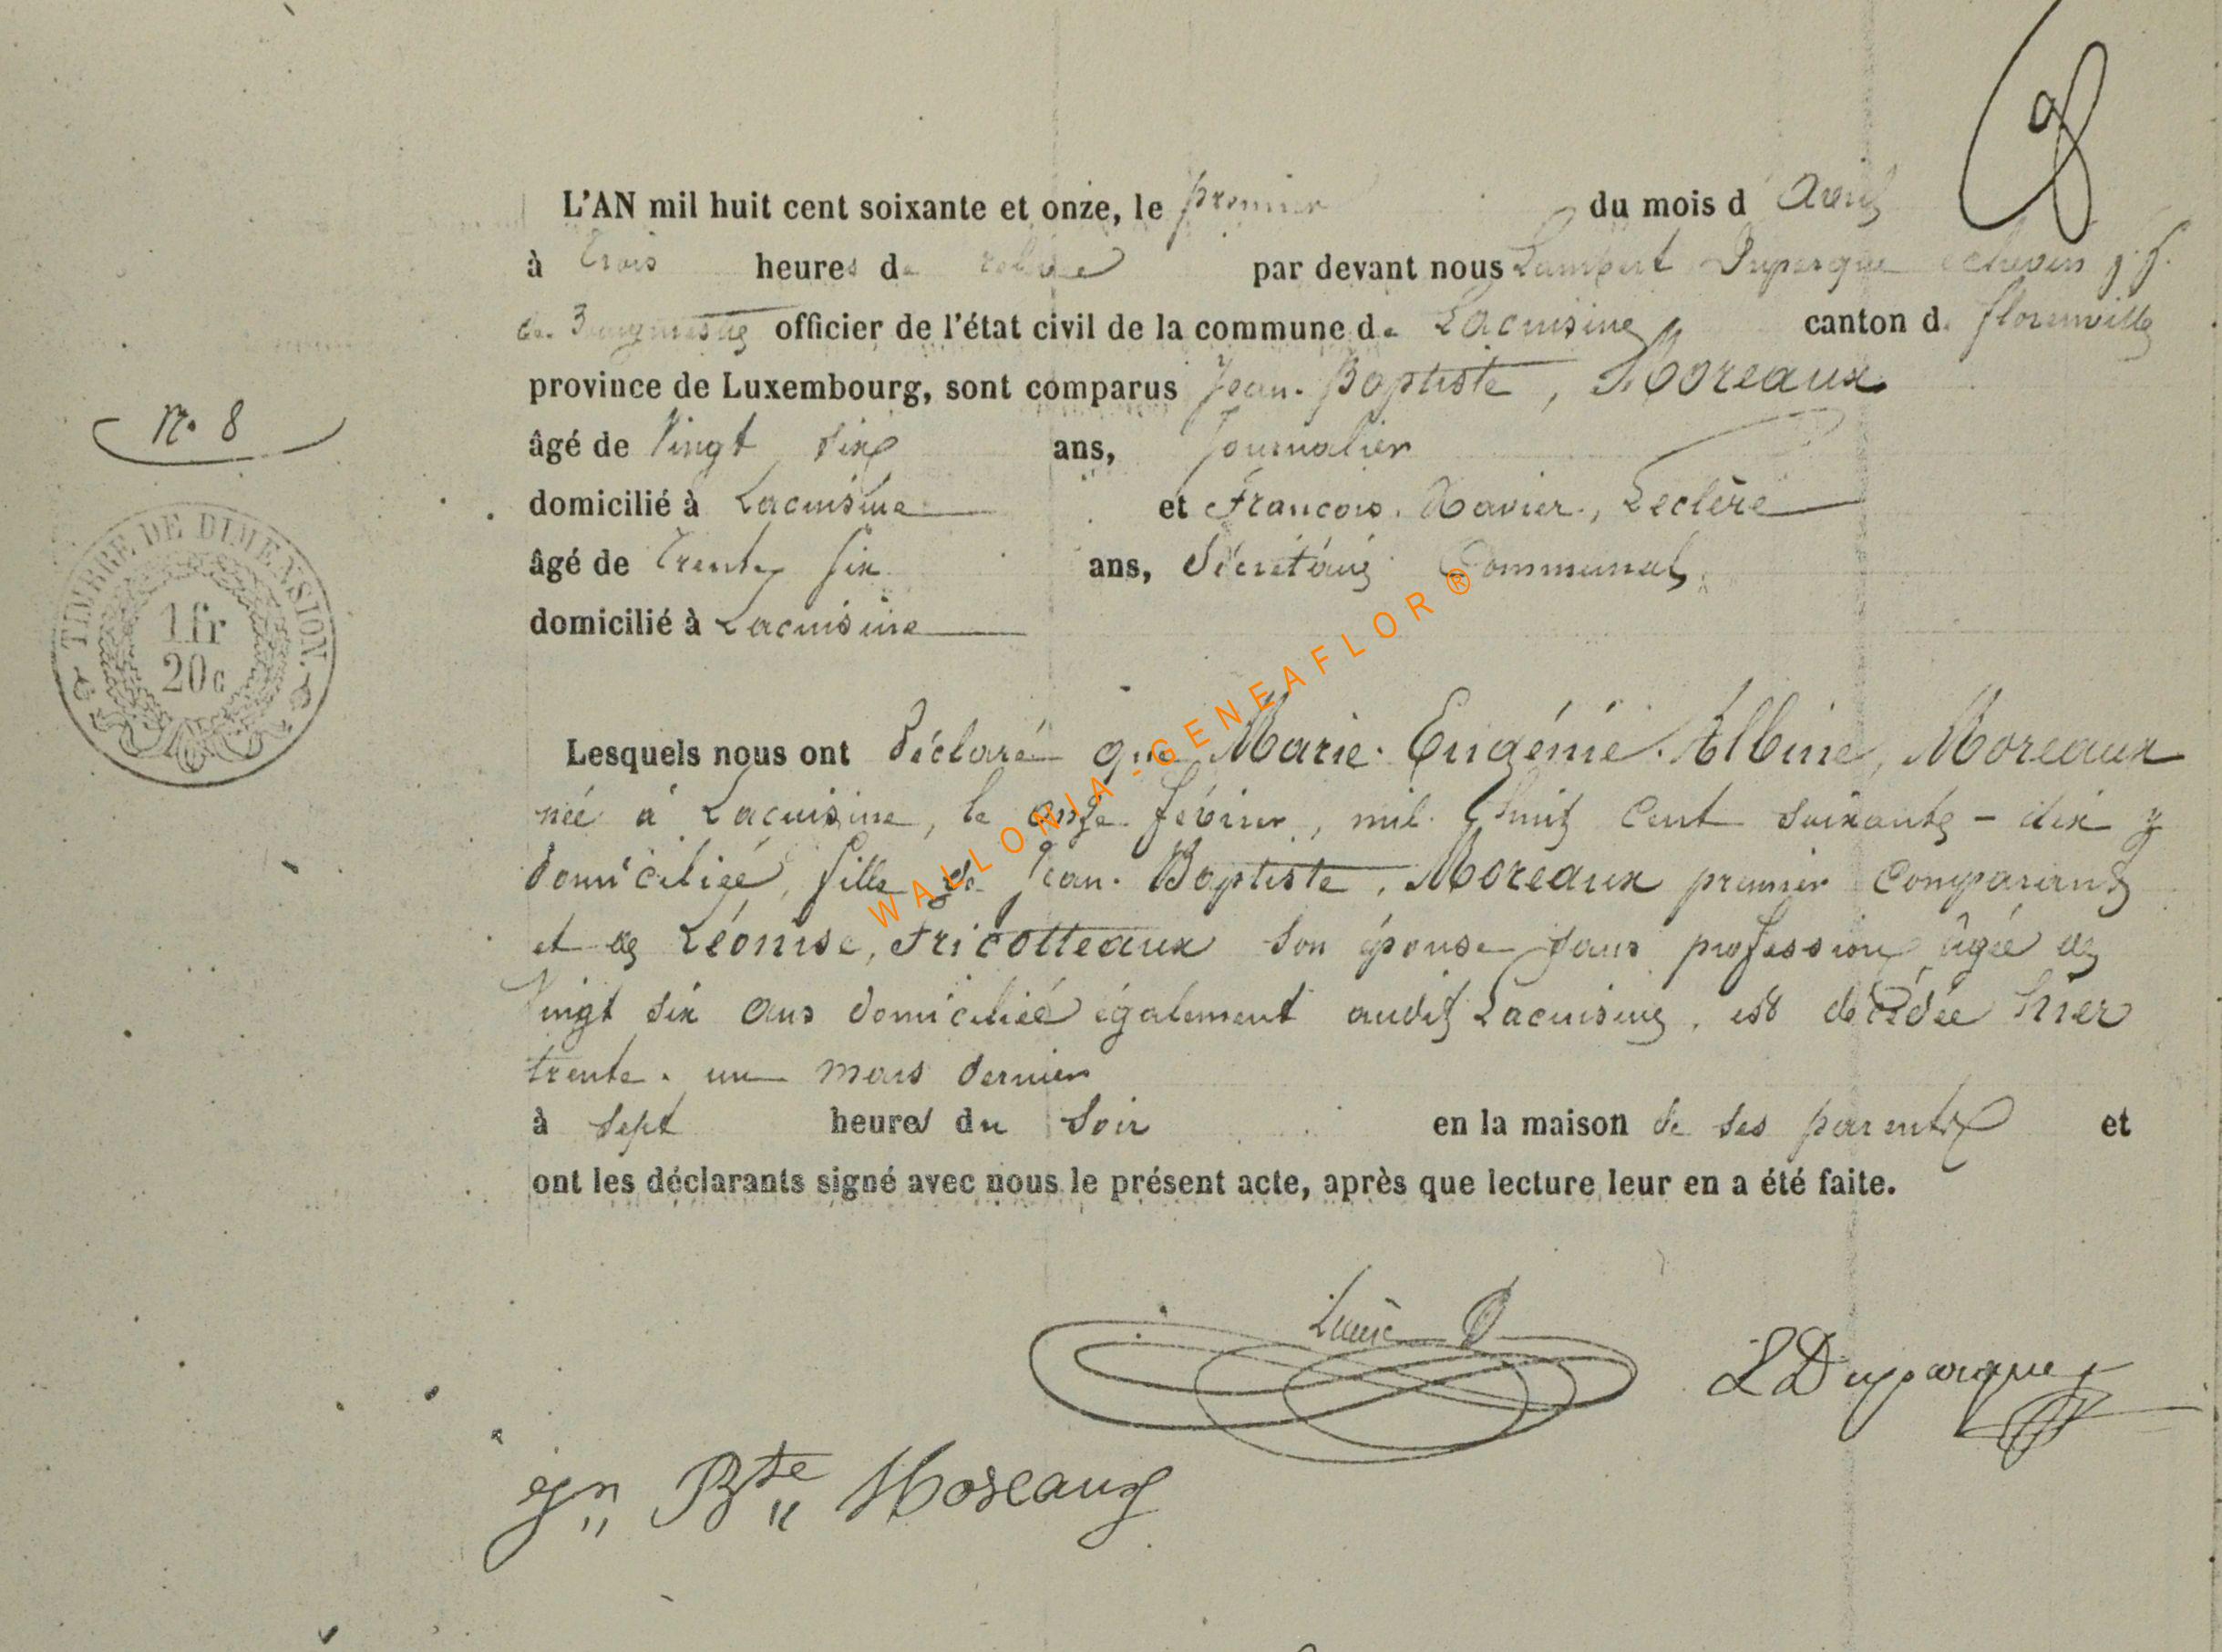 L'AN mil huit cent soixante et onze, le premier du mois d'Avril
à trois heures de relevée par devant nous Lambert Duparque échevin f.f.
de Bourgmestre officier de l'état civil de la commune de Lacuisine canton de florenville
province de Luxembourg, sont comparus Jean-Baptiste, Moreaux
N° 8
âgé de Vingt six ans, Journalier
domicilié à Lacuisine et François-Xavier, Leclère
âgé de Trente six ans, Sécrétaire Communal
domicilié à Lacuisine
TIMBRE DE DIMENSION.
1 fr
20 c
Lesquels nous ont déclaré que Marie-Eugénie-Albine, Moreaux
née à Lacuisine, le onze février, mil huit Cent soixante-dix y
domiciliée, fille de Jean-Baptiste, Moreaux premier Comparant
et de Léonise, Fricotteaux son épouse sans profession âgée de
Vingt six ans domiciliée également audit Lacuisine, est décédée hier
trente-un mars dernier
à sept heures du soir en la maison de ses parents et
ont les déclarants signé avec nous le présent acte, après que lecture leur en a été faite.
L Duparque
Jn Bte Moreaux
WALLONIA-GENEAFLOR ®